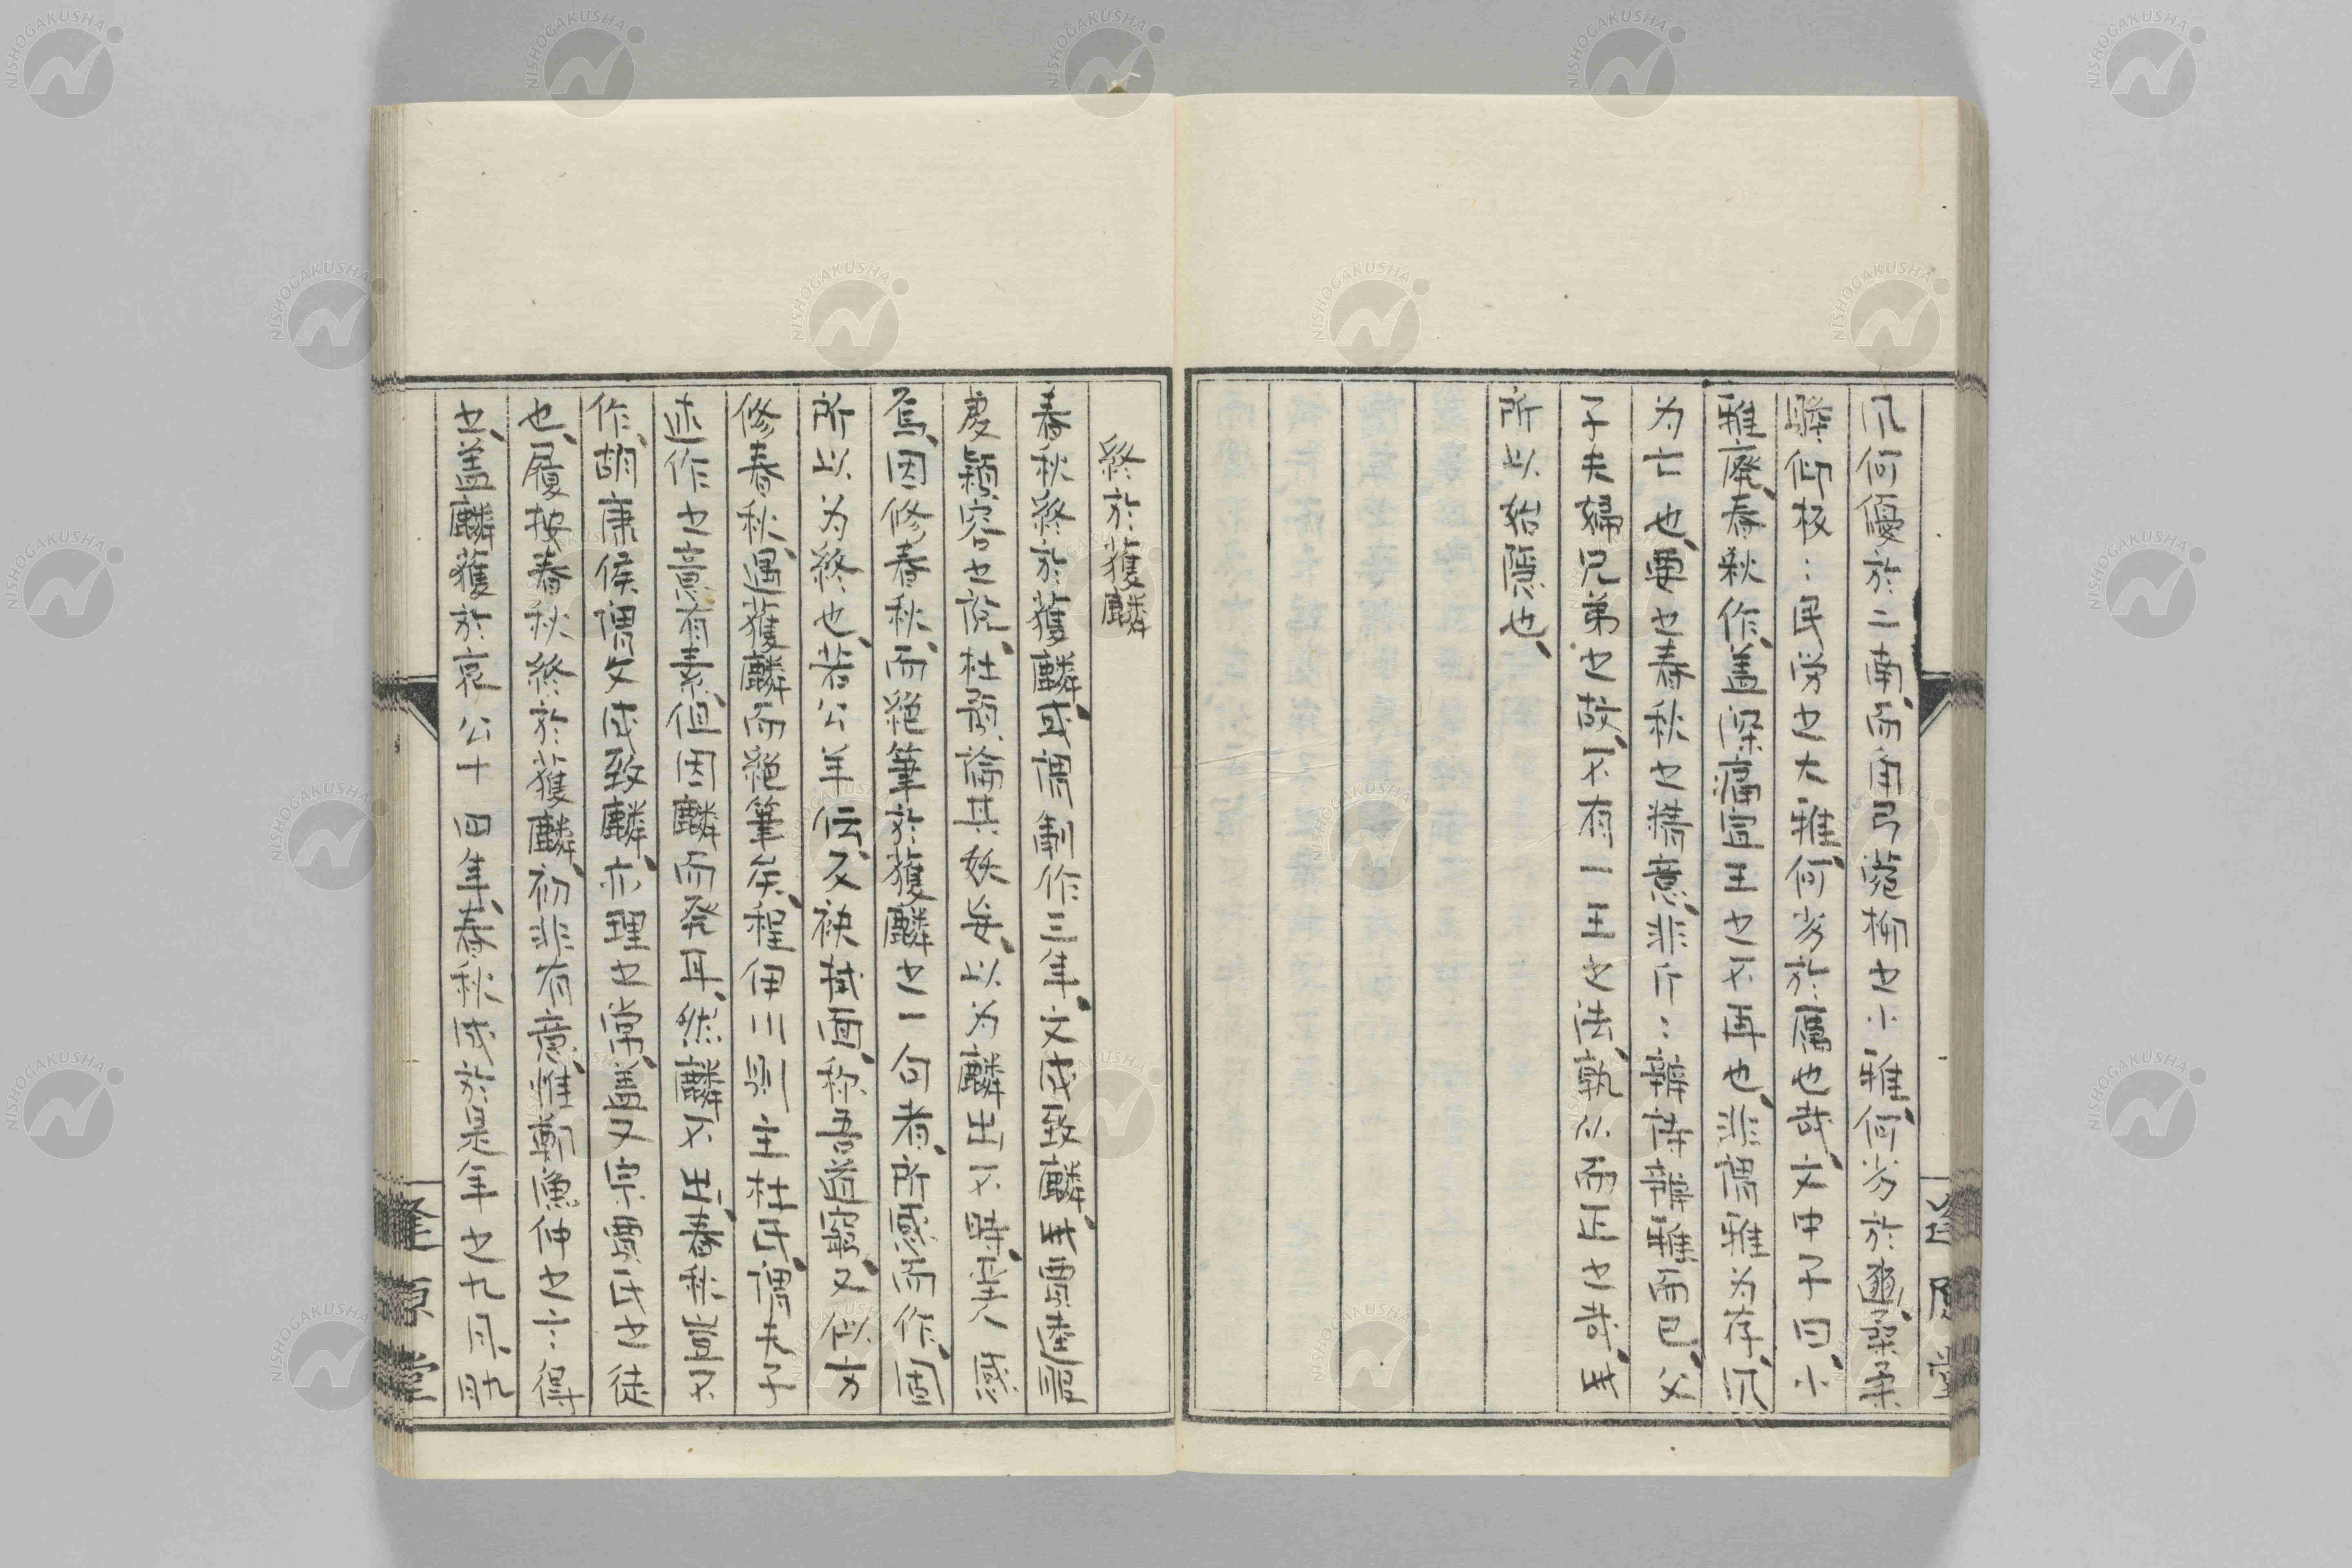 凡何優於二南、而角弓菀柳之小雅、何劣於邇、桑柔
瞻仰板〻民勞之大雅、何劣於厲也哉、文中子曰、小
雅廃、春秋作、蓋深痛宣王之不再也、非謂雅為存、凡
為亡也、要之春秋之精意、非斤〻辨詩辨雅而已、父
子夫婦兄弟之故、不有一王之法、孰从而正之哉、此
所以始隠也、
終於獲麟
春秋終於獲麟、或謂制作三年、文成致麟、此賈逵服
虔穎容之説、杜預論其妖妄、以為麟出不時、聖人感
焉、因修春秋、而絶筆於獲麟之一句者、所感而作、固
所以為終也、若公羊伝、又袂拭面、称吾道窮、又似方
修春秋、遇獲麟而絶筆矣、程伊川則主杜氏、謂夫子
述作之意有素、但因麟而発耳、然麟不出、春秋豈不
作、胡康侯謂文成致麟、亦理之常、蓋又宗賈氏之徒
也、履按春秋終於獲麟、初非有意、惟鄭漁仲之言〻得
之、蓋麟獲於哀公十四年、春秋成於是年之九月、耴
隆原堂